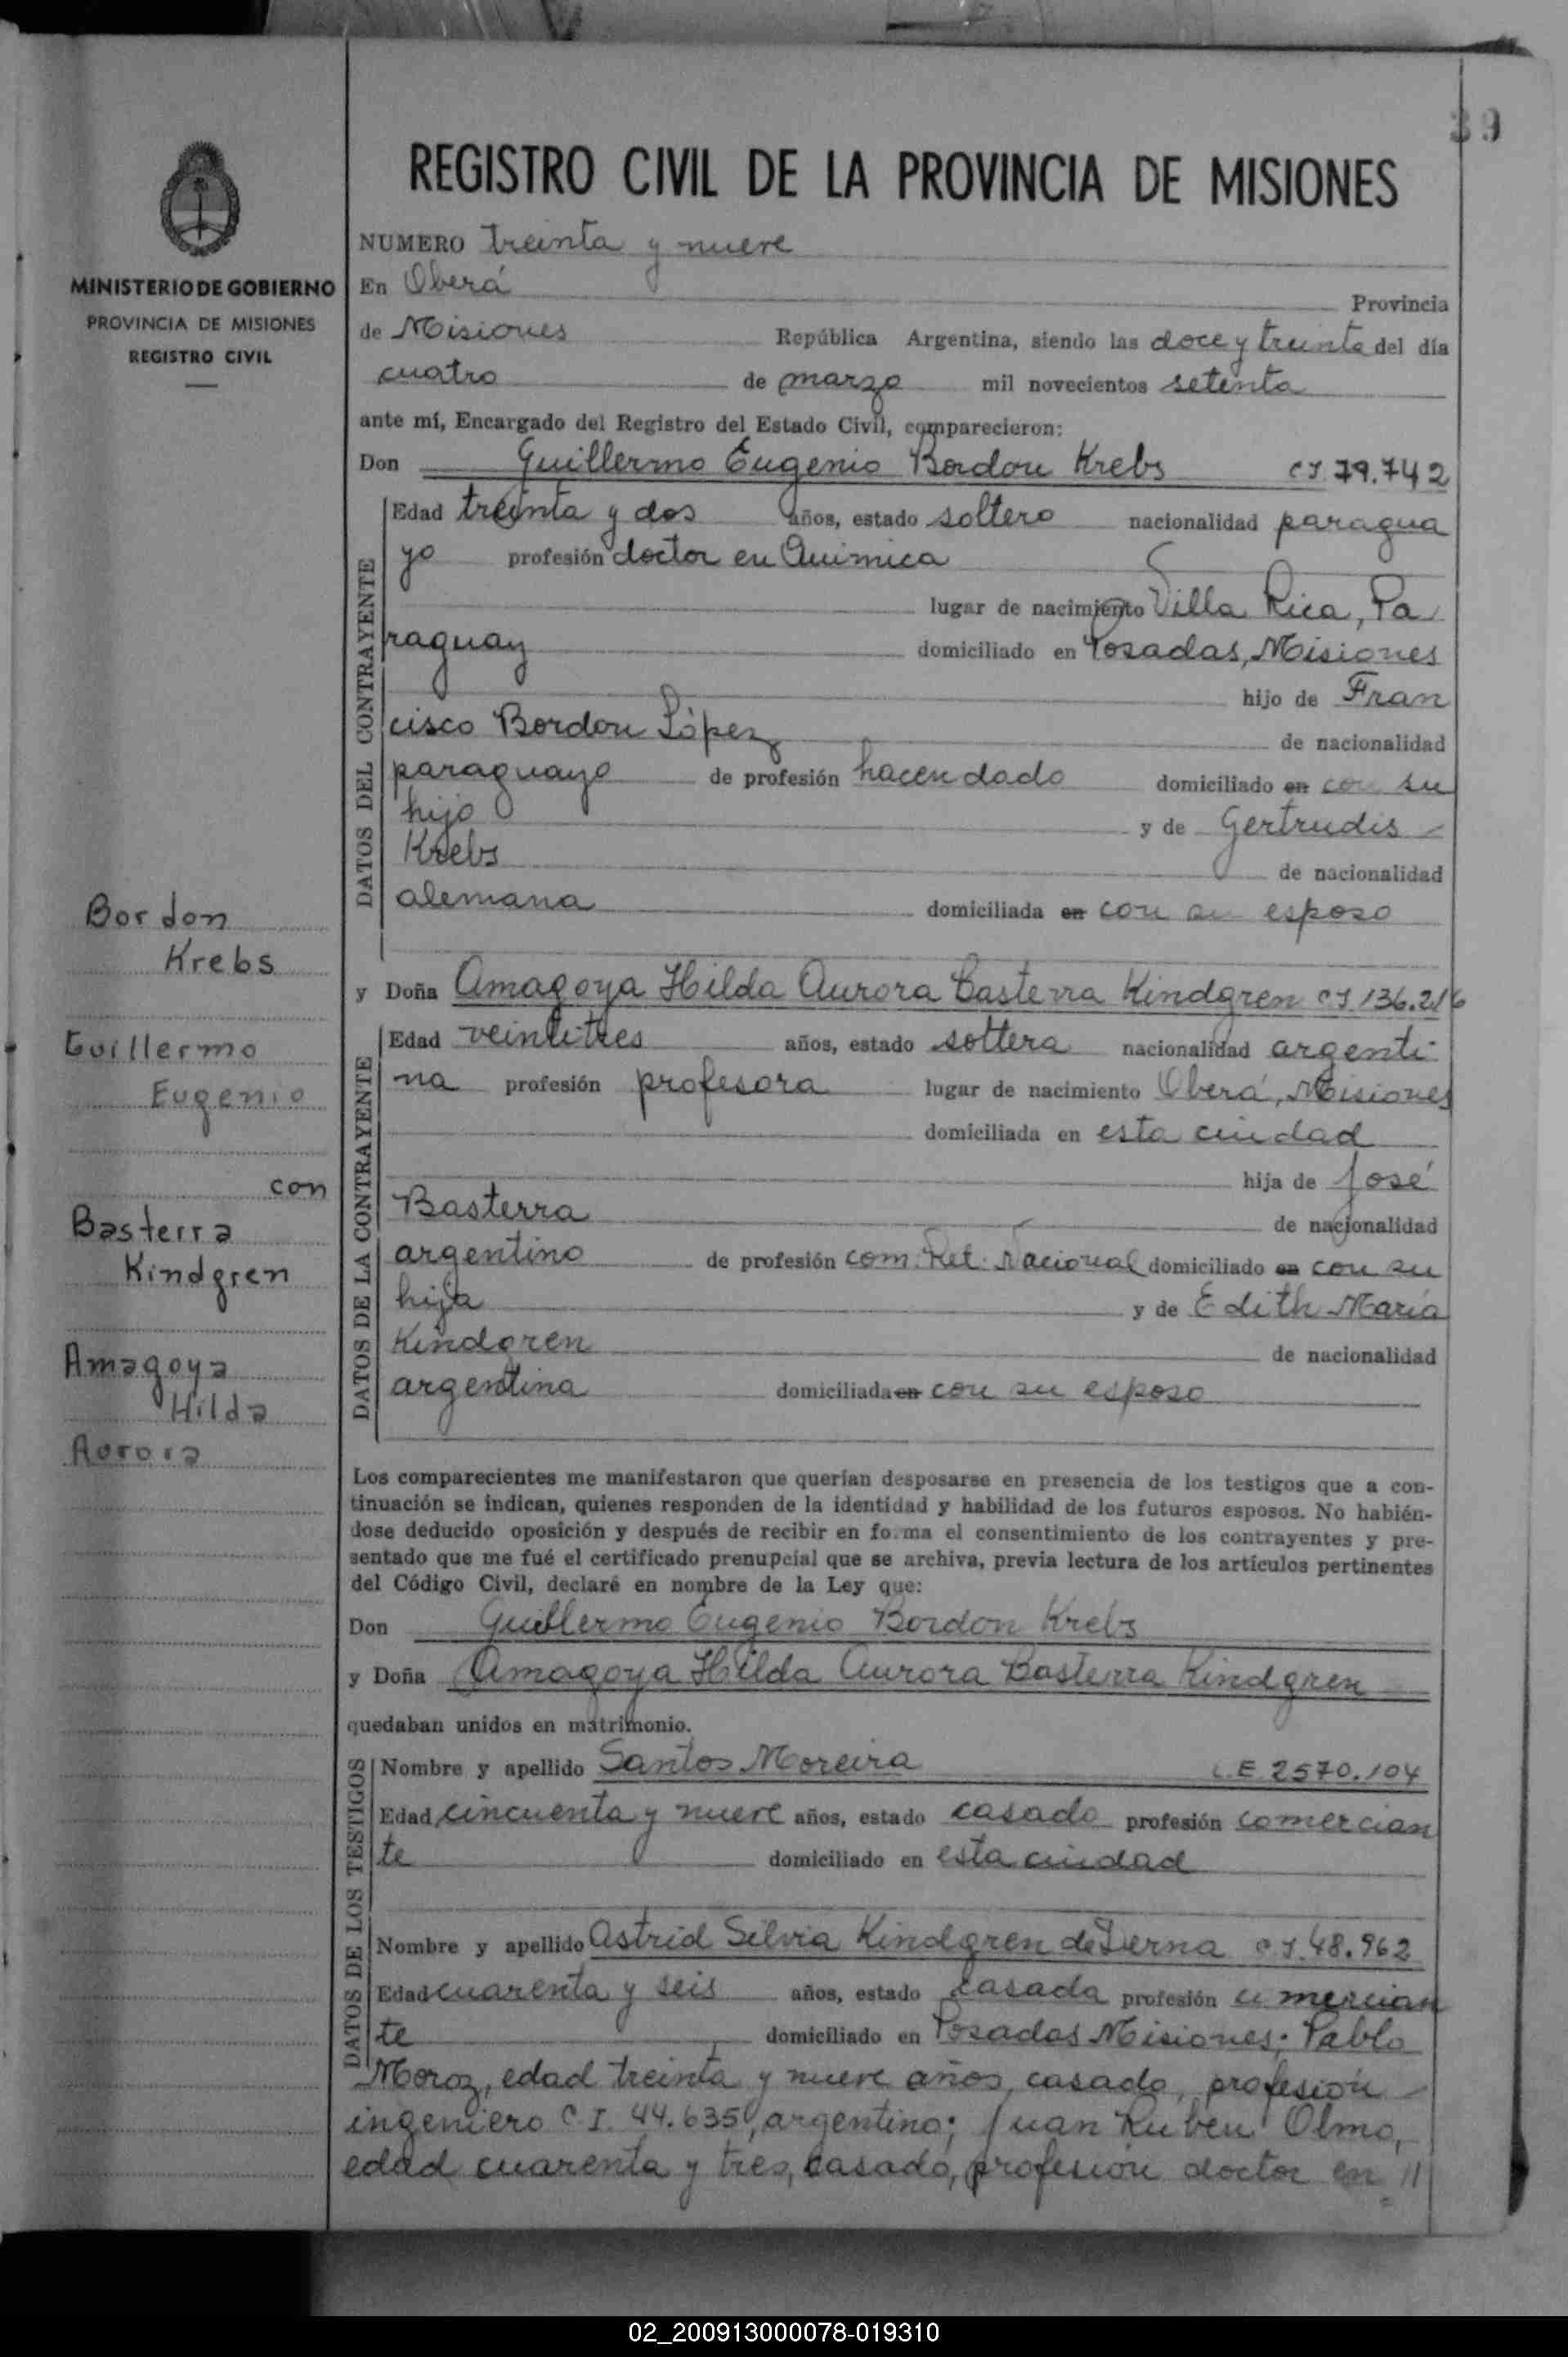 39
REGISTRO CIVIL DE LA PROVINCIA DE MISIONES
MINISTERIO DE GOBIERNO
PROVINCIA DE MISIONES
REGISTRO CIVIL
Bordon
Krebs
Guillermo
Eugenio
con
Basterra
Kindgren
Amagoya
Hilda
Aurora
NUMERO treinta y nueve
En Oberá Provincia
de Misiones República Argentina, siendo las doce y treinta del día
cuatro de marzo mil novecientos setenta
ante mí, Encargado del Registro del Estado Civil, comparecieron:
Don Guillermo Eugenio Bordon Krebs CI 79.742
DATOS DEL CONTRAYENTE
Edad treinta y dos años, estado soltero nacionalidad paragua
yo profesión doctor en Quimica
lugar de nacimiento Villa Rica, Pa
raguay domiciliado en Posadas, Misiones
hijo de Fran
cisco Bordon López de nacionalidad
paraguayo de profesión hacendado domiciliado en con su
hijo y de Gertrudis
Krebs de nacionalidad
alemana domiciliada en con su esposo
y Doña Amagoya Hilda Aurora Basterra Kindgren CI 136.216
DATOS DE LA CONTRAYENTE
Edad veintitres años, estado soltera nacionalidad argenti-
na profesión profesora lugar de nacimiento Oberá, Misiones
domiciliada en esta ciudad
hija de José
Basterra de nacionalidad
argentino de profesión com. Ret. Nacional domiciliado en con su
hija y de Edith María
Kindgren de nacionalidad
argentina domiciliada en con su esposo
Los comparecientes me manifestaron que querían desposarse en presencia de los testigos que a con-
tinuación se indican, quienes responden de la identidad y habilidad de los futuros esposos. No habién-
dose deducido oposición y después de recibir en forma el consentimiento de los contrayentes y pre-
sentado que me fué el certificado prenupcial que se archiva, previa lectura de los artículos pertinentes
del Código Civil, declaré en nombre de la Ley que:
Don Guillermo Eugenio Bordon Krebs
y Doña Amagoya Hilda Aurora Basterra Kindgren
quedaban unidos en matrimonio.
DATOS DE LOS TESTIGOS
Nombre y apellido Santos Moreira L.E 2570.104
Edad cincuenta y nueve años, estado casado profesión comercian
te domiciliado en esta ciudad
Nombre y apellido Astrid Silvia Kindgren de Sierna C I. 48.962
Edad cuarenta y seis años, estado casada profesión comercian
te domiciliado en Posadas Misiones; Pablo
Moroz, edad treinta y nueve años, casado, profesión
ingeniero C.I. 44.635, argentino; Juan Ruben Olmo,
edad cuarenta y tres, casado, profesión doctor en //
02_200913000078-019310